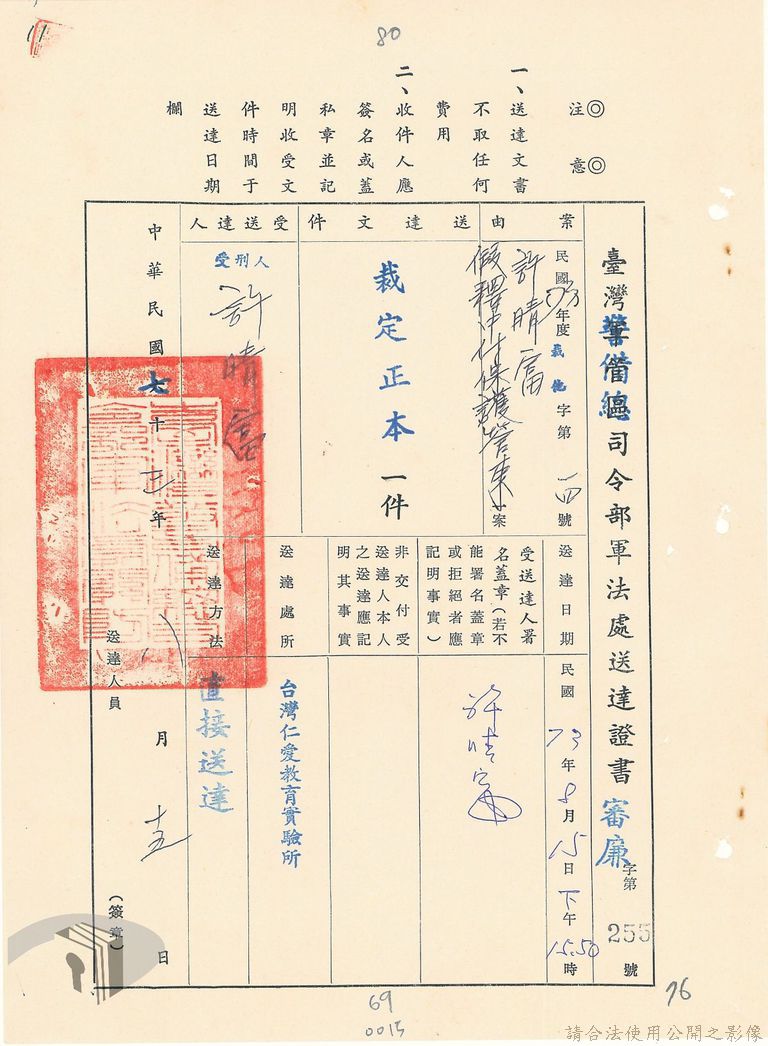 11
80
注意
一、送達文書不取任何費用
二、收件人應簽名或蓋私章並記明收受文件時間于送達日期欄
臺灣警備總司令部軍法處送達證書 審廉字第255號
案由
民國73年度裁他字第一四號
許晴富
假釋中付保護管束案
送達文件
裁定正本一件
受送達人
受刑人
許晴富
送達日期
民國73年8月15日下午15.50時
受送達人署名蓋章(若不能署名蓋章或拒絕者應記明事實)
許晴富
非交付受送達人本人之送達應記明其事實
送達處所
台灣仁愛教育實驗所
送達方法
直接送達
中華民國七十三年八月十五日
送達人員
(簽章)
69
0015
76
請合法使用公開之影像